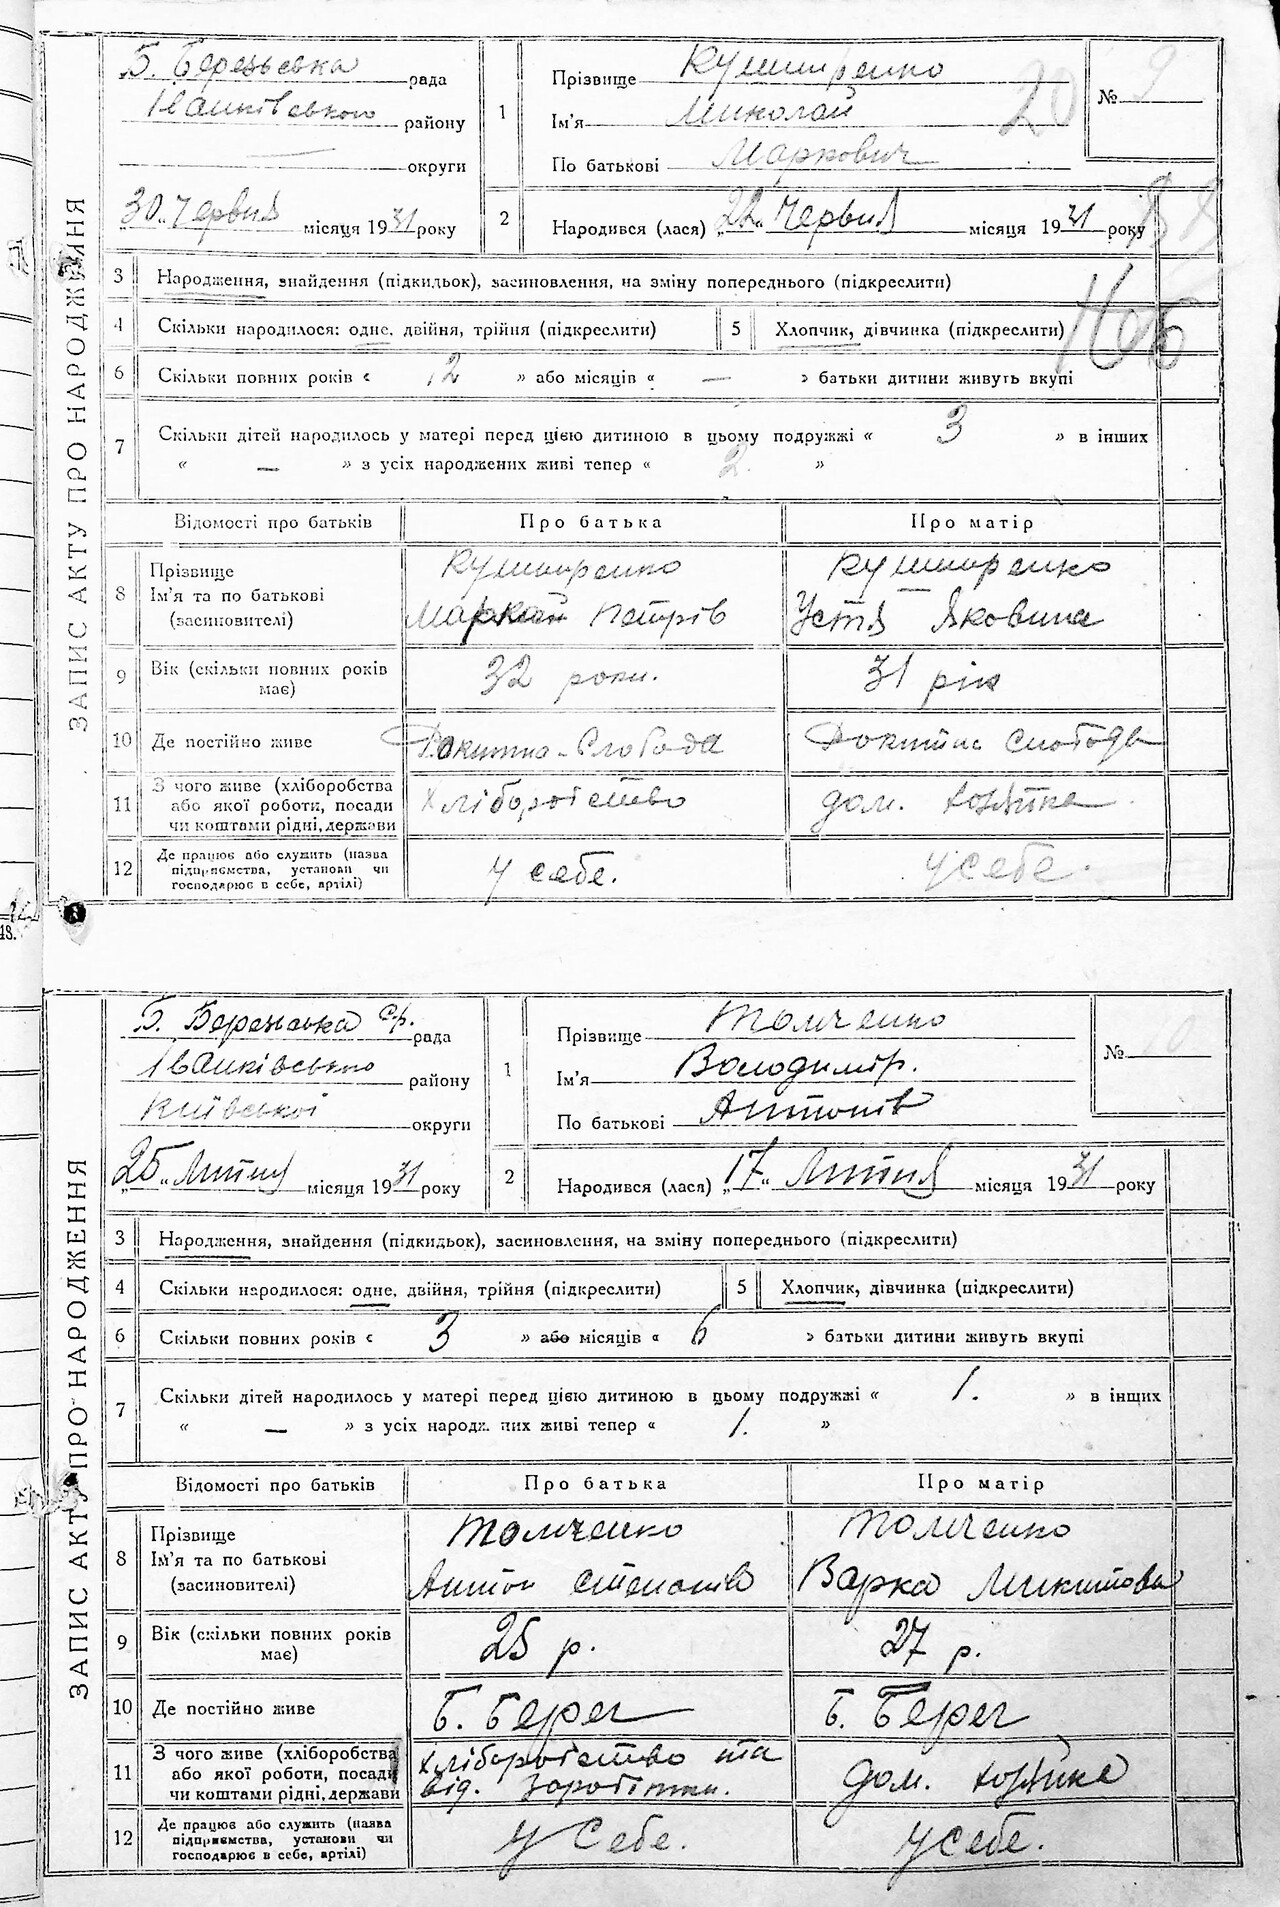 ЗАПИС АКТУ ПРО НАРОДЖЕННЯ
Б. Березьська рада
Іванківського району
— округи
„30„ Червня місяця 1931 року
1
Прізвище Кушниренко
Ім'я Миколай
По батькові Маркович
20
№ 9
2
Народився (лася) „22„ Червня місяця 1931 року
3 Народження, знайдення (підкидьок), засиновлення, на зміну попереднього (підкреслити)
4 Скільки народилося: одне, двійня, трійня (підкреслити)
5 Хлопчик, дівчинка (підкреслити)
6 Скільки повних років « 12 » або місяців « — » батьки дитини живуть вкупі
7 Скільки дітей народилось у матері перед цією дитиною в цьому подружжі « 3 » в інших
« — » з усіх народжених живі тепер « 2 »
Відомості про батьків Про батька Про матір
8 Прізвище Ім'я та по батькові (засиновителі)
Кушниренко Петрів
Кушниренко Устя Яковина
9 Вік (скільки повних років має) 32 роки. 31 рік
10 Де постійно живе Рокитна-Слобода Рокитна Слобода
11 З чого живе (хліборобства або якої роботи, посади чи коштами рідні, держави
Хліборобство дом. хозяйка
12 Де працює або служить (назва підприємства, установи чи господарює в себе, артілі)
у себе. у себе.
48.
ЗАПИС АКТУ ПРО НАРОДЖЕННЯ
Б. Березьська с.р. рада
Іванківсько району
Київської округи
„25„ Липня місяця 1931 року
1
Прізвище Толченко
Ім'я Володимір.
По батькові Антонів
№ 10
2
Народився (лася) „17„ Липня місяця 1931 року
3 Народження, знайдення (підкидьок), засиновлення, на зміну попереднього (підкреслити)
4 Скільки народилося: одне, двійня, трійня (підкреслити)
5 Хлопчик, дівчинка (підкреслити)
6 Скільки повних років « 3 » або місяців « 6 » батьки дитини живуть вкупі
7 Скільки дітей народилось у матері перед цією дитиною в цьому подружжі « 1. » в інших
« — » з усіх народж них живі тепер « 1. »
Відомості про батьків Про батька Про матір
8 Прізвище Ім'я та по батькові (засиновителі)
Толченко Антон Степанів
Толченко Варка Микитова
9 Вік (скільки повних років має) 25 р. 27 р.
10 Де постійно живе Б. Берег Б. Берег
11 З чого живе (хліборобства або якої роботи, посади чи коштами рідні, держави
Хліборобство та від. заробітки. дом. хозяйка
12 Де працює або служить (назва підприємства, установи чи господарює в себе, артілі)
у себе. у себе.